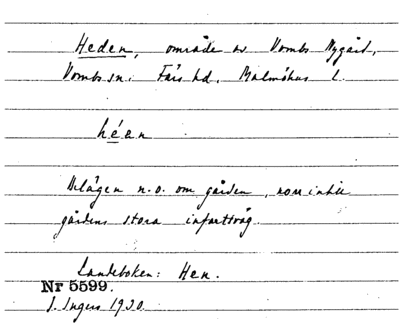 Heden, område av Vombs Nygård,
Vombs sn. Färs hd. Malmöhus l.
héan
Belägen n.o. om gården, norr intill
gårdens stora infartsväg.
Landeboken: Hen.
Nr 5599.
I. Ingers 1930.